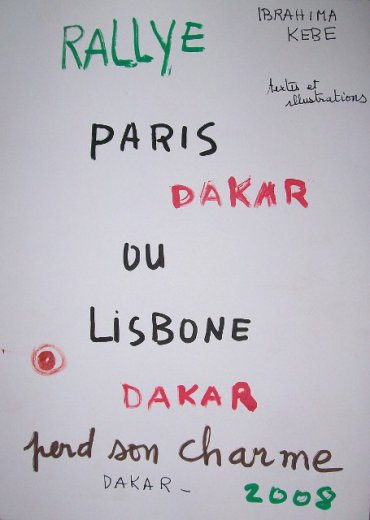 RALLYE
IBRAHIMA
KEBE
textes et
illustrations
PARIS
DAKAR
OU
LISBONE
DAKAR
perd son charme
DAKAR_
2008